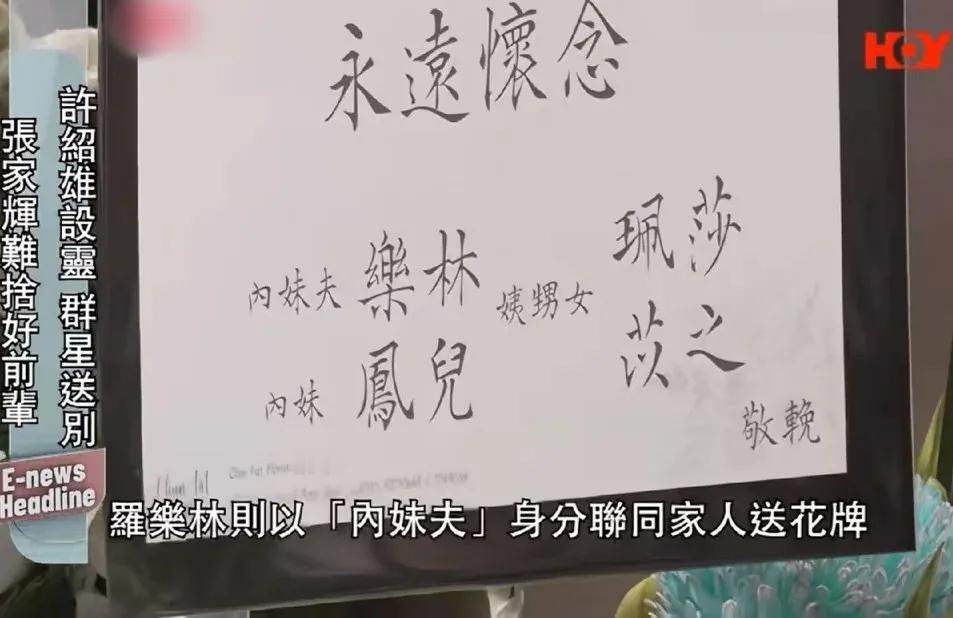 HOY
永遠懷念
內妹夫 樂林
內妹 鳳兒
姨甥女 珮莎
苡之
敬輓
許紹雄設靈 群星送別
張家輝難捨好前輩
E-news
Headline
羅樂林則以「內妹夫」身分聯同家人送花牌